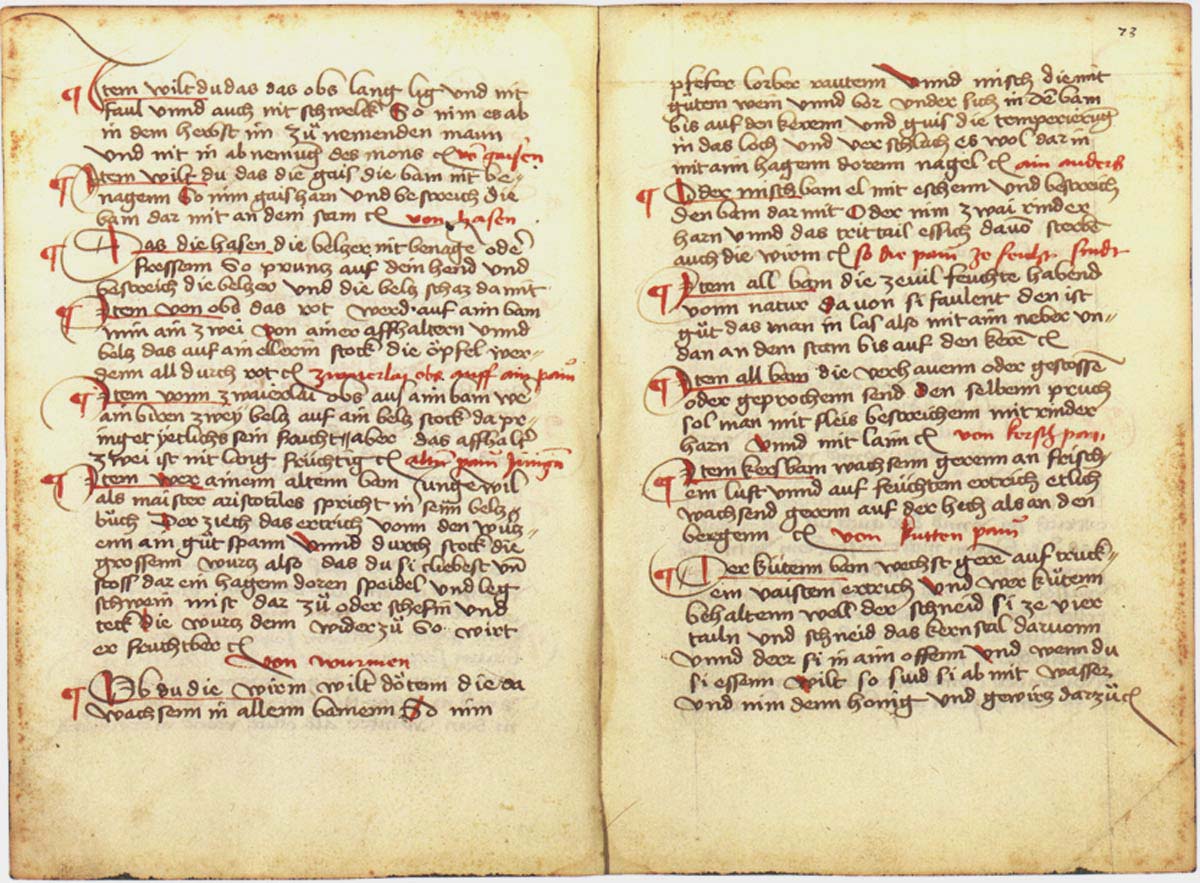 Item wilt du das das obs lang lig und nit
faul unnd auch nit schwelk So nim es ab
in dem herbst im zů nemenden maun
und nit in abnemũg des mons võ gaisen
Item wilt du das die gais die bam nit be-
nagenn So nim gaisharn und bestreich die
bam dar mit an dem stam von hasen
Das die hasen die belzer nit benage oder
fressenn So prunz auf dein hend und
bestreich die belzer und die belz schaz da mit
Item von obs das rot werd auf aim bam
nim ain zwei von ainer affhaltern unnd
belz das auf ain ellerin stock die öpfel wer-
denn all durch rot zwaierlai obs auff ain pau
Item vonn zwaierlai obs auf ainn bam
ain birn zwey belz auf ain belz stock da pr-
inget yetlichs sein frucht aber das affhalter
zwei ist nit long früchtig altn paum jungen
Item wer ainenn altenn bam Junge wil
als maister aristotiles spricht in seim belz
bůch Der ziech das ertrich vonn den wůrz-
enn ain gůt spann unnd durch stock die
grossenn wurz also das du si cliebest un
stoss dar ein hagenn doren speidel und leg
schwein mist dar zů oder schefin und
teck die wurz denn wider zů So wirt
er fruchtber
von wurmen
Ob du die wirm wilt dötenn die da
wachsenn in allenn bamenn So nim
73
pfefer lorber rautenn unnd misch die mit
gůtem wein unnd bor under sich in den bam
bis auf den kerenn und guis die temperierũg
in das loch und verschlach es wol dar in
mit aim hagenn dorenn nagel ain anders
Oder misch bam el mit eschenn und bestreich
den bam dar mit Oder nim zwai rinder
harn unnd das trittail essich davõ sterbe
auch die wirm so die paum ze feucht sindt
Item all bam die zeuil feuchte habend
vonn natur Da von si faulent den ist
gůt das man in las also mit aim neber un-
dan an dem stam bis auf den kere
Item all bam die verhauenn oder gestosse
oder geprochenn send den selbenn pruch
sol man mit fleis bestreichenn mit rinder
harn unnd mit laim von kersch pau
Item kersbam wachsenn gerenn an frisch-
em luft unnd auf feuchtem ertrich etlich
wachsend gerenn auf der hech als an den
bergenn von kutten paum
Der kütenn bam wechst gere auf truck-
em vaistem ertrich Und wer kütenn
behaltenn well der schneid si ze vier
tailn und schneid das kernstal darvonn
unnd derr si in aim offenn und wenn du
si essenn wilt so siud si ab mit wasser
und nim denn honig und gewirz darzů